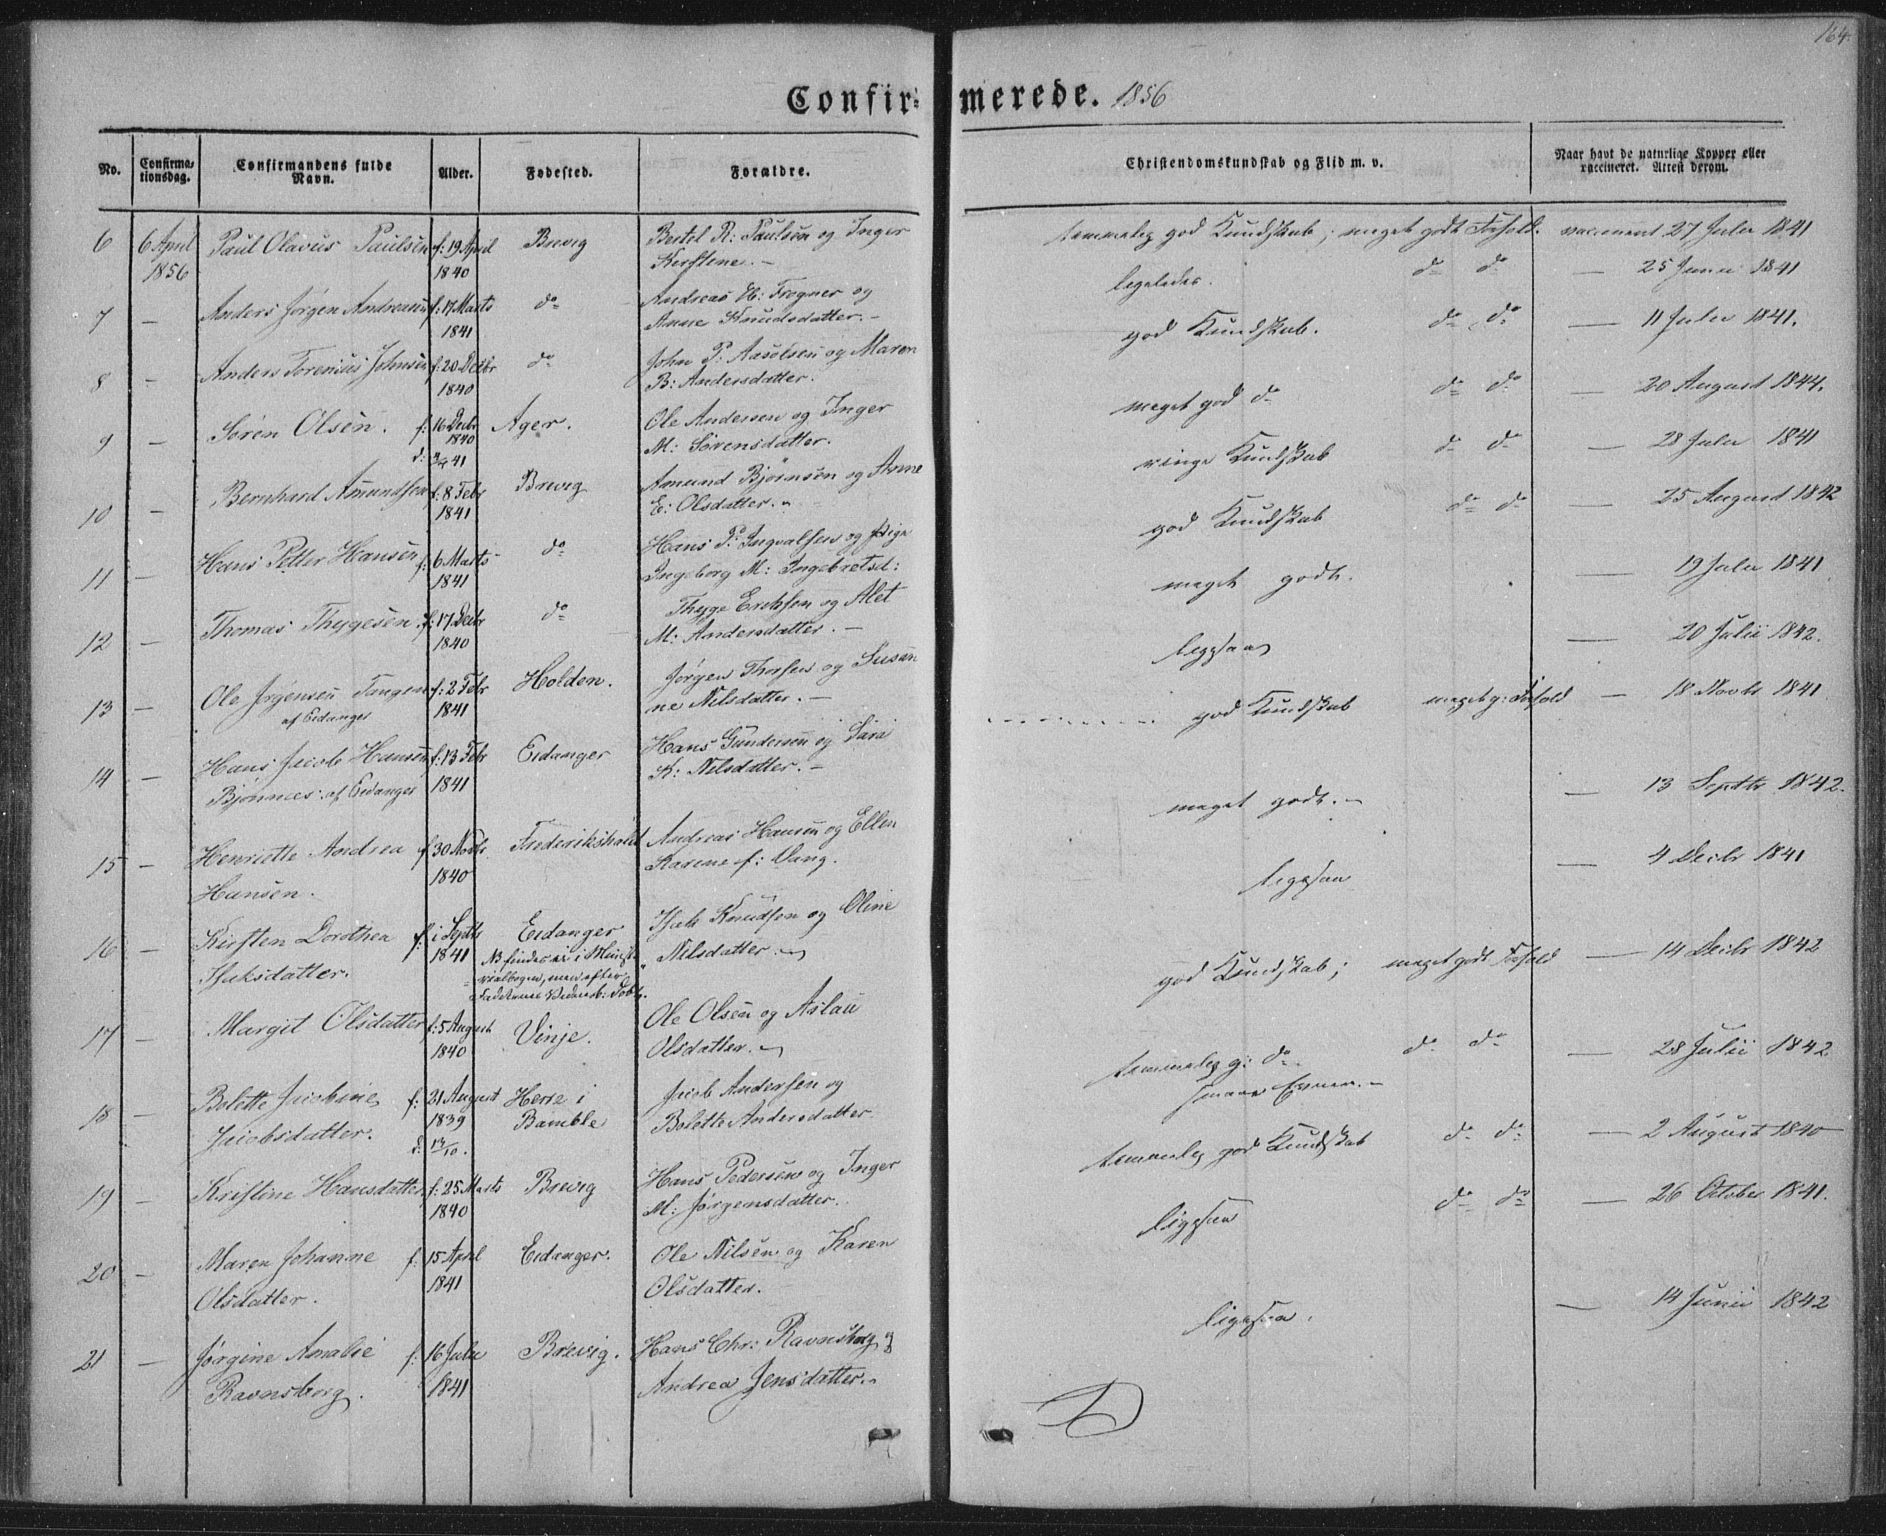 164.
Confirmerede. 1856
No.
Confirmationsdag.
Confirmandens fulde Navn.
Alder.
Fødested.
Forældre.
Christendomskundskab og Flid m. v.
Naar havt de naturlige Kopper eller vaccineret. Attest derom.
6 6 April Paul Olavus Paulsen f: 19 April Brevig Bertel R: Paulsen og Inger temmelig god Kundskab; meget godt Forhold. vaccineret 27 Julii 1841
1856 1840 Kirstine. –
7 – Anders Jørgen Andreasen f: 17 Marts do Andreas H: Frogner og ligeledes. do do — 25 Junii 1841
1841 Anne Knudsdatter. –
8 – Anders Torenius Johnsen f: 20 Decbr do John P: Aasolsen og Maren god Kundskab. do do — 11 Julii 1841.
1840 B: Andersdatter.
9 – Søren Olsen. f: 16 Decbr Ager. Ole Andersen og Inger meget god do do do — 20 August 1844.
1840 M: Sørensdatter.
d: 3/4 41
10 – Bernhard Amundsen f: 8 Febr Brevig Amund Bjørnsen og Anne ringe Kundskab do do — 28 Julii 1841
1841 E: Olsdatter.
11 – Hans Petter Hansen f: 6 Marts do Hans P: Ingvalsen og Pige god Kundskab do do — 25 August 1842
1841 Ingeborg M: Ingebretsd:
12 – Thomas Thygesen f: 17 Decbr do Thyge Eriksen og Alet meget godt. — 19 Julii 1841
1840 M: Andersdatter. –
13 – Ole Jørgensen Tangen f: 2 Febr Holden. Jørgen Thorsen og Susan ligesaa — 20 Julii 1842.
af Eidanger 1841 ne Nilsdatter. –
14 – Hans Jacob Hansen f: 13 Febr Eidanger Hans Gundersen og Sara god Kundskab meget g: Forhold — 18 Novbr 1841
Bjønnes: af Eidanger 1841 K: Nilsdatter. –
15 – Henriette Andrea f: 30 Novbr. Frederikshald Andreas Hansen og Ellen meget godt. – — 13 Septbr 1842.
Hansen. 1840 Karene f: Vang.
16 – Kirsten Dorothea f: 1 Septbr Eidanger Isak Knudsen og Oline ligesaa — 4 Decbr 1841
Isaksdatter. 1841 NB findes ei i Ministe Nilsdatter.
rialbogen, men efter
17 – Margit Olsdatter f: 5 August Vinje. Ole Olsen og Aslau god Kundskab; meget godt Forhold — 14 Decbr 1842
1840 Olsdatter.
18 – Bolette Jacobine f: 21 August Herre i Jacob Andersen og temmelig g: do do do — 28 Julii 1842
Jacobsdatter. 1839 Bamble Bolette Andersdatter
d: 13/10.
19 – Kristine Hansdatter f: 25 Marts Brevig Hans Pedersen og Inger temmelig god Kundskab do do — 2 August 1840
1840 M: Jørgensdatter.
20 – Maren Johanne f: 15 April Eidanger. Ole Nilsen og Karen ligesaa do do — 26 October 1841.
Olsdatter. 1841 Olsdatter.
21 – Jørgine Amalie f: 16 Julii Brevig. Hans Chr: Ravnsborg og ligesaa. — 14 Junii 1842
Ravnsborg. 1841 Andrea Jensdatter.